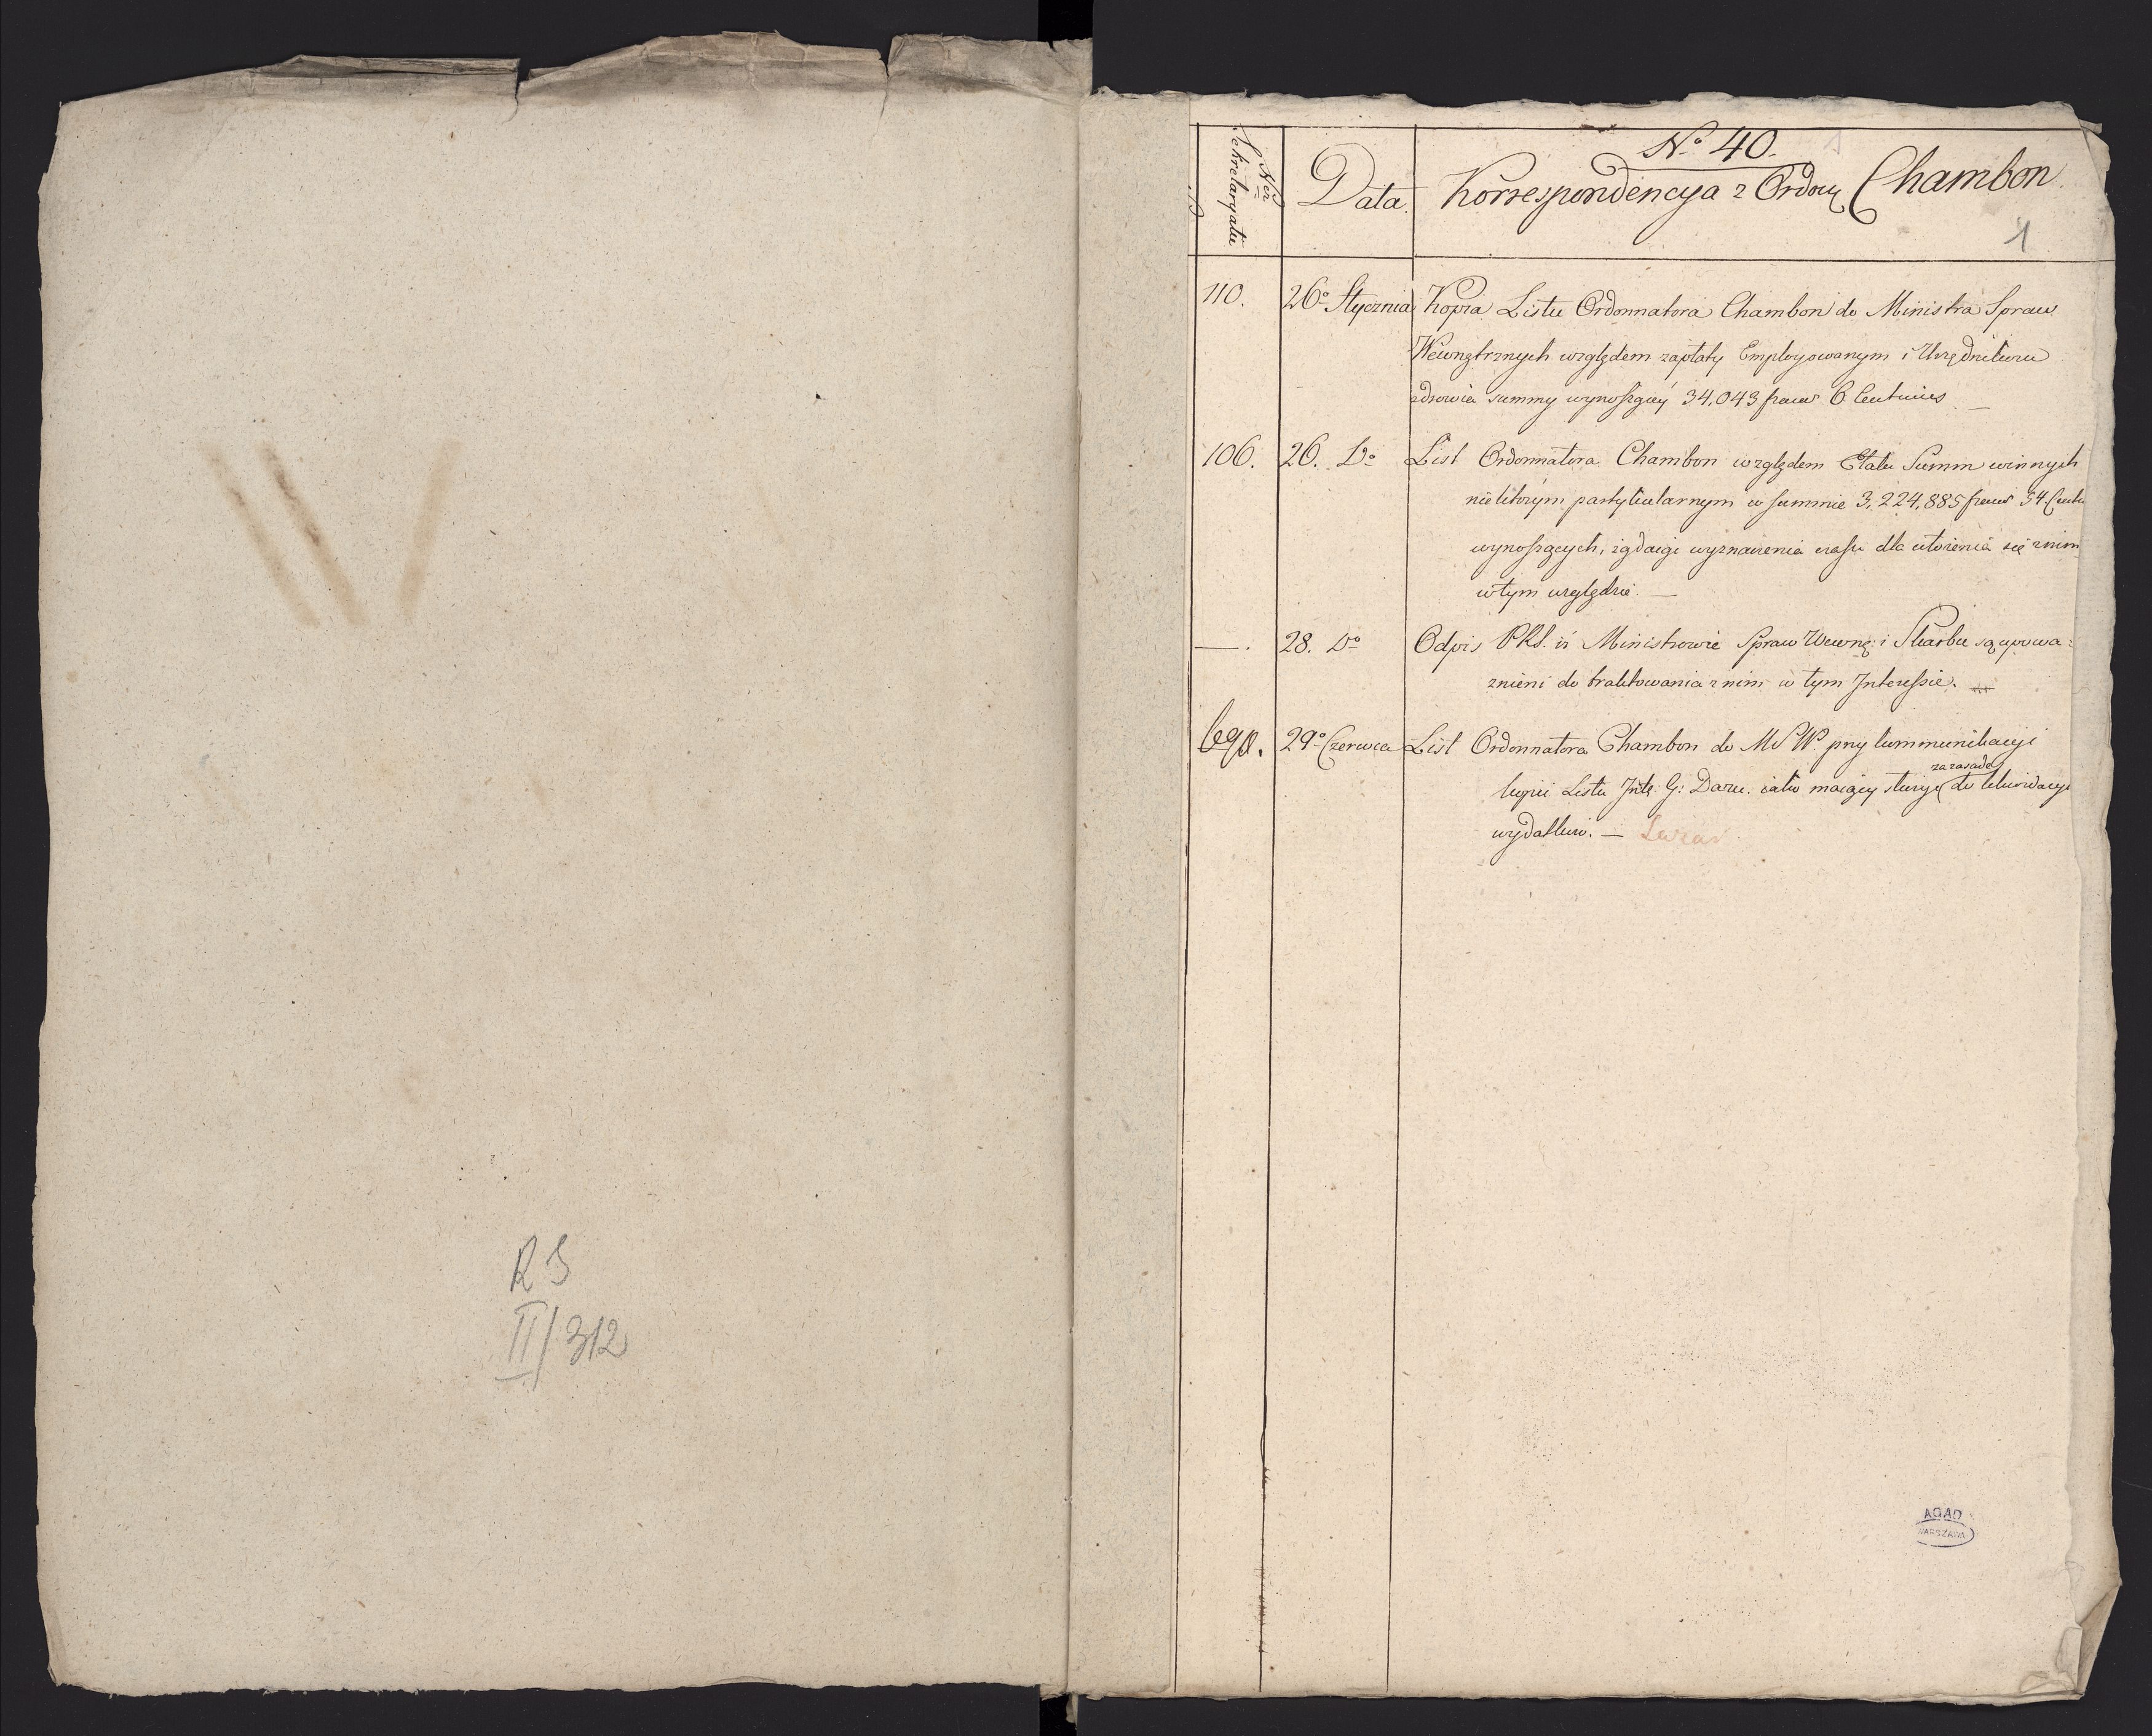 R S
II/312
No 40.
Nër Sekretaryatu
Data.
Korrespondencya z Ordon Chambon.
1
110.
26o Stycznia
Kopia Listu Ordonnatora Chambon do Ministra Spraw
Wewnętrznych względem zapłaty Employowanym i Urzędnikom
zdrowia summy wynoszącéy 34,043 franc 6 Centimes —
106.
26. Do
List Ordonnatora Chambon względem Etatu Summ winnych
niektórym partykularnym w summie 3,224,885 franc 54 Cent
wynoszących, i żądaiąc wyznaczenia czasu dla ułożenia się z nim
w tym względzie. —
—.
28. Do
Odpis PRS. iż Ministrowie Spraw Wewnę: i Skarbu są upowa=
żnieni do traktowania z nim w tym Interessie. —
690.
29o Czerwca
List Ordonnatora Chambon do MSW. przy kommunikacyi
kopii Listu Inte G: Daru. iako maiącey służyć za zasadę do likwidacyi
wydatków. —
AGAD
WARSZAWA